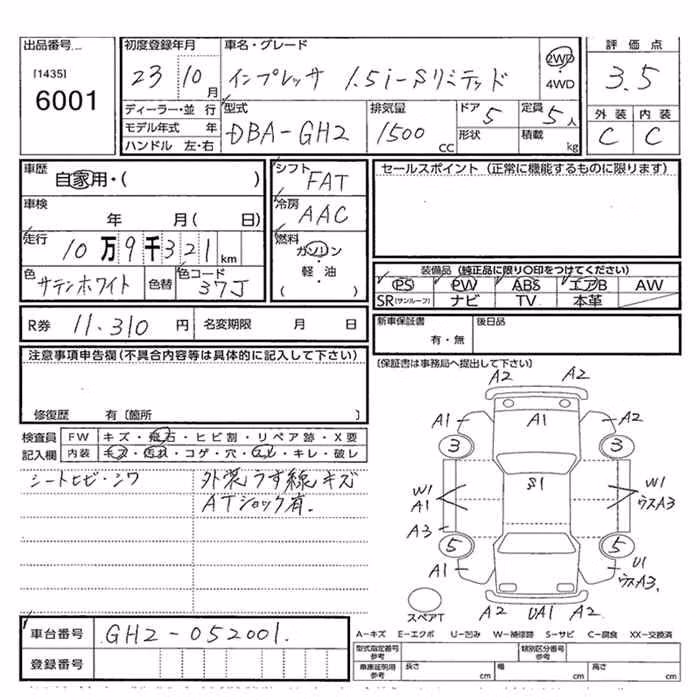 出品番号
[1435]
6001
初度登録年月
23 10月
車名・グレード
インプレッサ 1.5i-Sリミテッド
2WD
4WD
評価点
3.5
ディーラー・並行
モデル年式 年
ハンドル 左・右
型式
DBA-GH2
排気量
1500 CC
ドア 5
形状
定員 5人
積載 kg
外装 内装
C C
車歴
自家用・( )
車検
年 月( 日)
走行
10万9千321km
色
サテンホワイト
色替
色コード
37J
シフト
FAT
冷房
AAC
燃料
ガソリン
・
軽・油
( )
セールスポイント(正常に機能するものに限ります)
装備品(純正品に限り〇印をつけてください)
PS PW ABS エアB AW
SR(サンルーフ) ナビ TV 本革
R券 11.310 円 名変期限 月 日
新車保証書
有・無
後日品
注意事項申告欄(不具合内容等は具体的に記入して下さい)
修復歴 有〔箇所 〕
〔保証書は事務局へ提出して下さい〕
検査員 FW キズ・飛石・ヒビ割・リペア跡・X要
記入欄 内装 キズ・汚れ・コゲ・穴・スレ・キレ・破レ
シートヒビ・シワ
外装うす線キズ
ATショック有.
A2 A2
A1 A1 A2
3 3
S1
W1 W1
A1 ウスA3
A3
5 5
A1 U1
ウスA3.
スペアT
A2 UA1 A2
車台番号 GH2-052001.
登録番号
A-キズ E-エクボ U-凹み W-補修跡 S-サビ C-腐食 XX-交換済
型式指定番号
参考
類別区分番号
参考
車庫証明用
参考
長さ cm 幅 cm 高さ cm